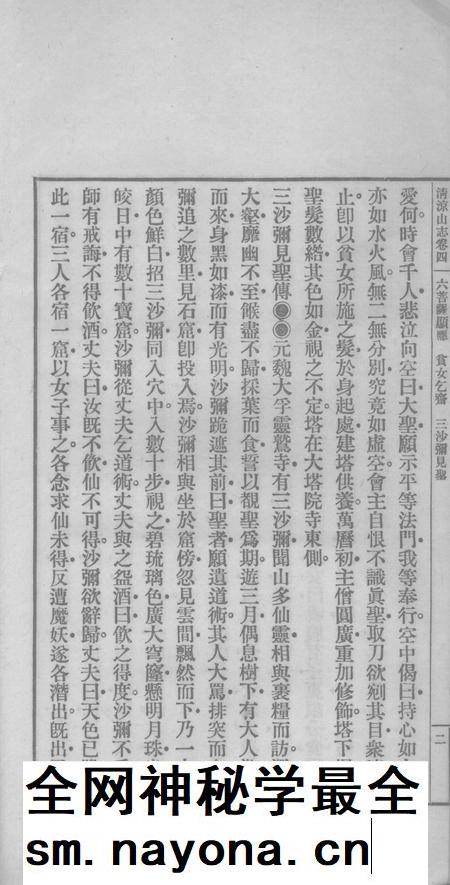 清涼山志卷四 六菩薩顯應 貧女乞齋 三沙彌見聖 二
愛何時會千人悲泣向空曰大聖願示平等法門我等奉行空中偈曰持心如
亦如水火風無二無分別究竟如虛空會主自恨不識眞聖取刀欲剜其目衆
止卽以貧女所施之髮於身起處建塔供養萬曆初主僧圓廣重加修飾塔下
聖髮數綹其色如金視之不定塔在大塔院寺東側
三沙彌見聖傳●●元魏大孚靈鷲寺有三沙彌聞山多仙靈相與裹糧而訪
大壑靡幽不至餱盡不歸採葉而食誓以覩聖爲期遊三月偶息樹下有大人
而來身黑如漆而有光明沙彌跪遮其前曰聖者願遺道術其人大罵排突而
彌追之數里見石窟卽投入焉沙彌相與坐於窟傍忽見雲間飄然而下乃一
顏色鮮白招三沙彌同入穴中入數十步視之碧琉璃色廣大穹窿懸明月珠
皎日中有數十寶窟沙彌從丈夫乞道術丈夫與之盌酒曰飮之得度沙彌不
師有戒誨不得飮酒丈夫曰汝旣不飮仙不可得沙彌欲辭歸丈夫曰天色已
此一宿三人各宿一窟以女子事之各念求仙未得反遭魔妖遂各潛出旣出
全网神秘学最全
sm.nayona.cn